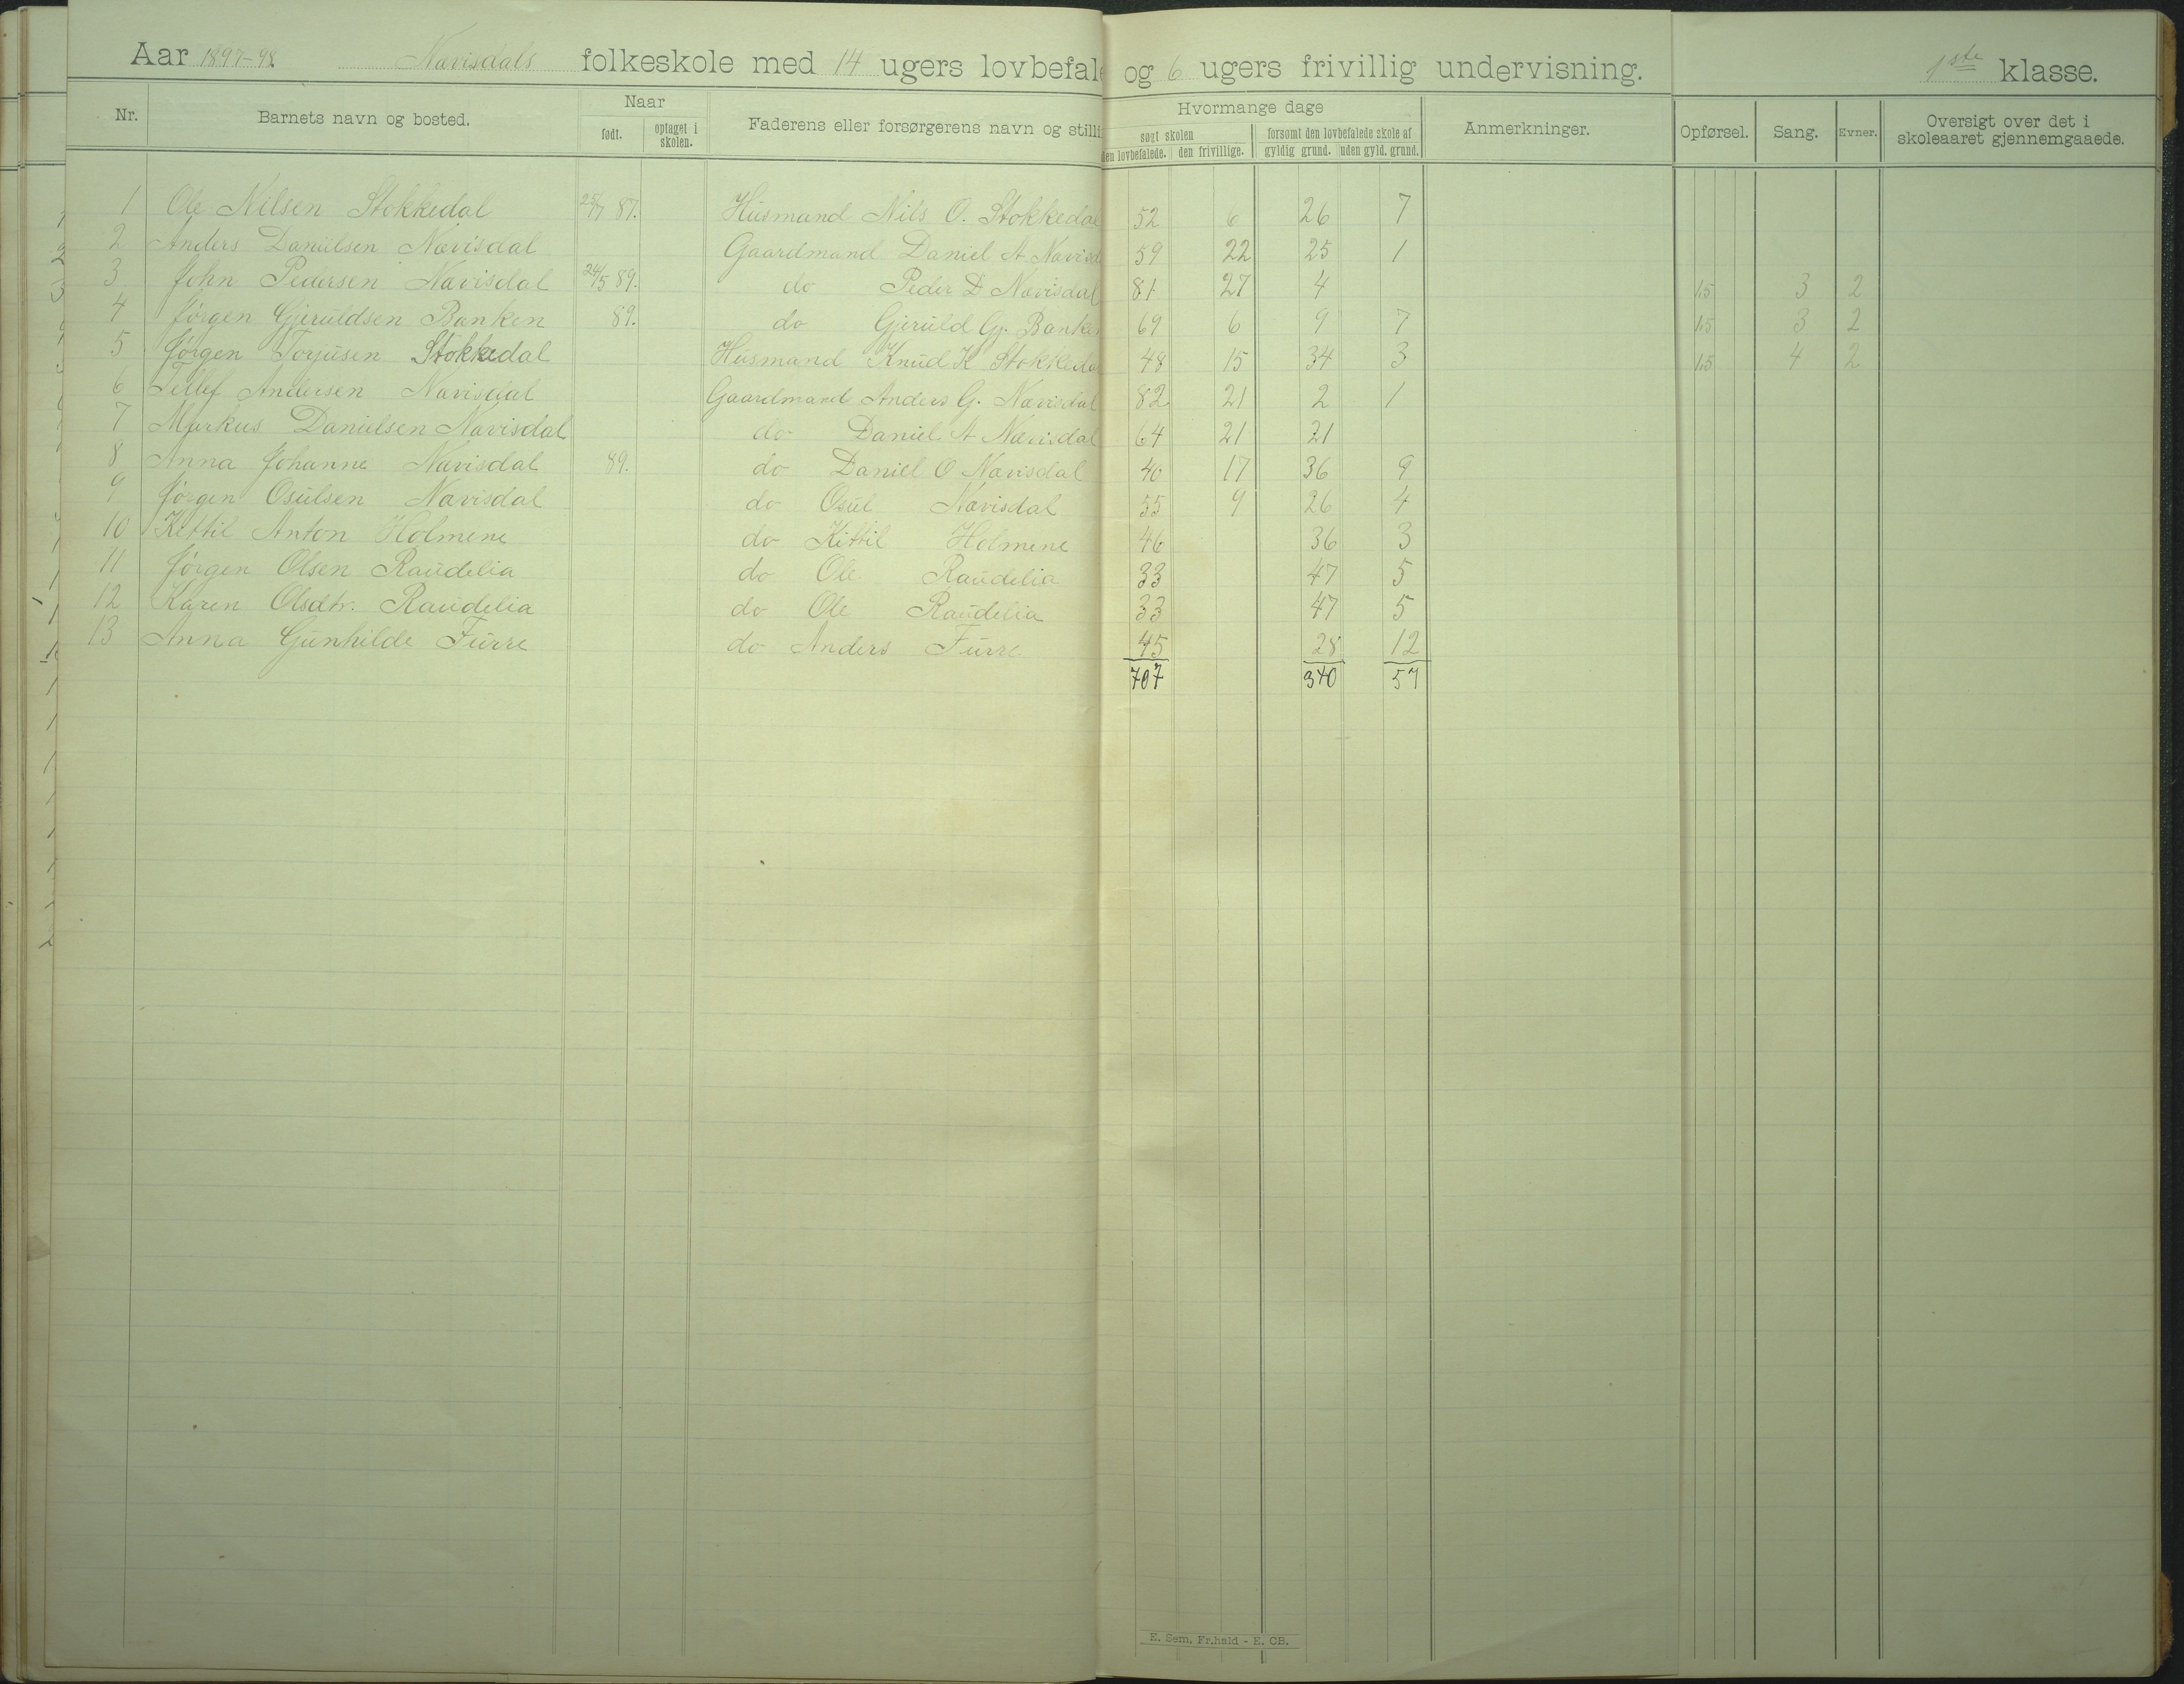 Aar 1897-98. Navisdals folkeskole med 14 ugers lovbefal og 6 ugers frivillig undervisning. 1ste klasse.
Nr. Barnets navn og bosted. Naar født. optaget i skolen. Faderens eller forsørgerens navn og stilli Hvormange dage søgt skolen den lovbefalede. den frivillige. forsømt den lovbefalede skole af gyldig grund. uden gyld. grund. Anmerkninger. Opførsel. Sang. Evner. Oversigt over det i skoleaaret gjennemgaaede.
1 Ole Nilsen Stokkedal 25/7 87. Husmand Nils O. Stokkedal 52 6 26 7
2 Anders Danielsen Navisdal Gaardmand Daniel A Navisd 59 22 25 1
3 John Pedersen Navisdal 24/5 89. do Peder D Navisdal 81 27 4 1.5 3 2
4 Jørgen Gjeruldsen Banken 89. do Gjeruld Gj. Banken 69 6 9 7 1.5 3 2
5 Jørgen Torjusen Stokkedal Husmand Knud K Stokkeda 48 15 34 3 1.5 4 2
6 Tellef Andersen Navisdal Gaardmand Anders G. Navisdal 82 21 2 1
7 Markus Danielsen Navisdal do Daniel A Navisdal 64 21 21
8 Anna Johanne Navisdal 89. do Daniel O Navisdal 40 17 36 9
9 Jørgen Osulsen Navisdal do Osul Navisdal 55 9 26 4
10 Kittil Anton Holmene do Kittil Holmene 46 36 3
11 Jørgen Olsen Raudelia do Ole Raudelia 33 47 5
12 Karen Olsdtr. Raudelia do Ole Raudelia 33 47 5
13 Anna Gunhilde Furre do Anders Furre 45 28 12
707 340 57
E. Sem, Fr.hald - E. CB.